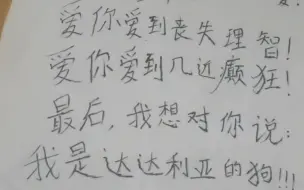 爱你爱到丧失理智!
爱你爱到几近癫狂!
最后,我想对你说:
我是达达利亚的狗!!!